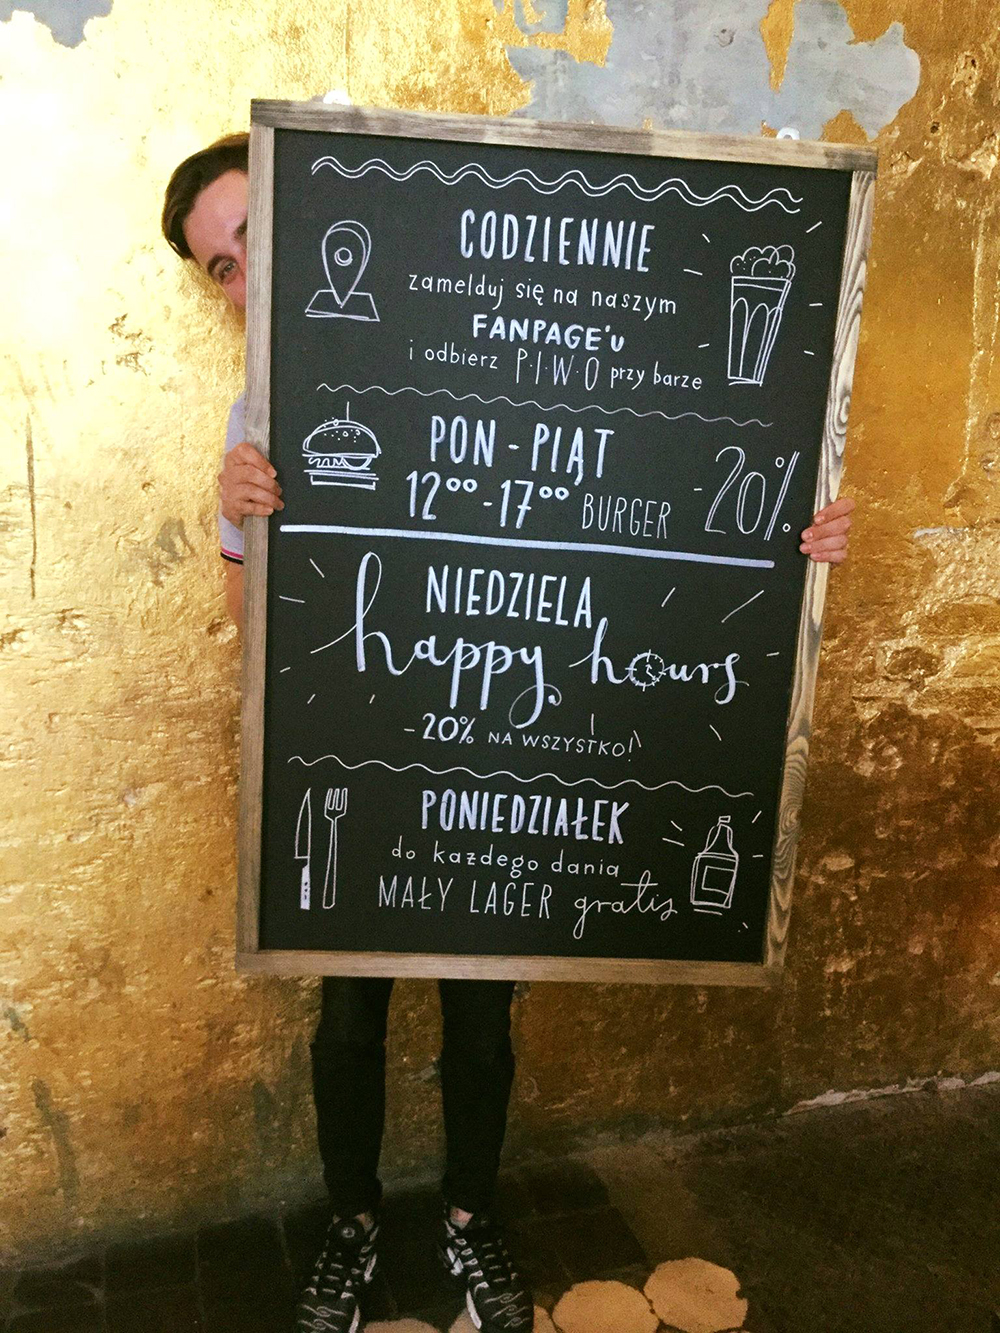 CODZIENNIE
zamelduj się na naszym
FANPAGE'u
i odbierz P.I.W.O przy barze
PON - PIĄT
12°° - 17°° BURGER -20%
NIEDZIELA
happy hours
-20% NA WSZYSTKO!
PONIEDZIAŁEK
do każdego dania
MAŁY LAGER gratis